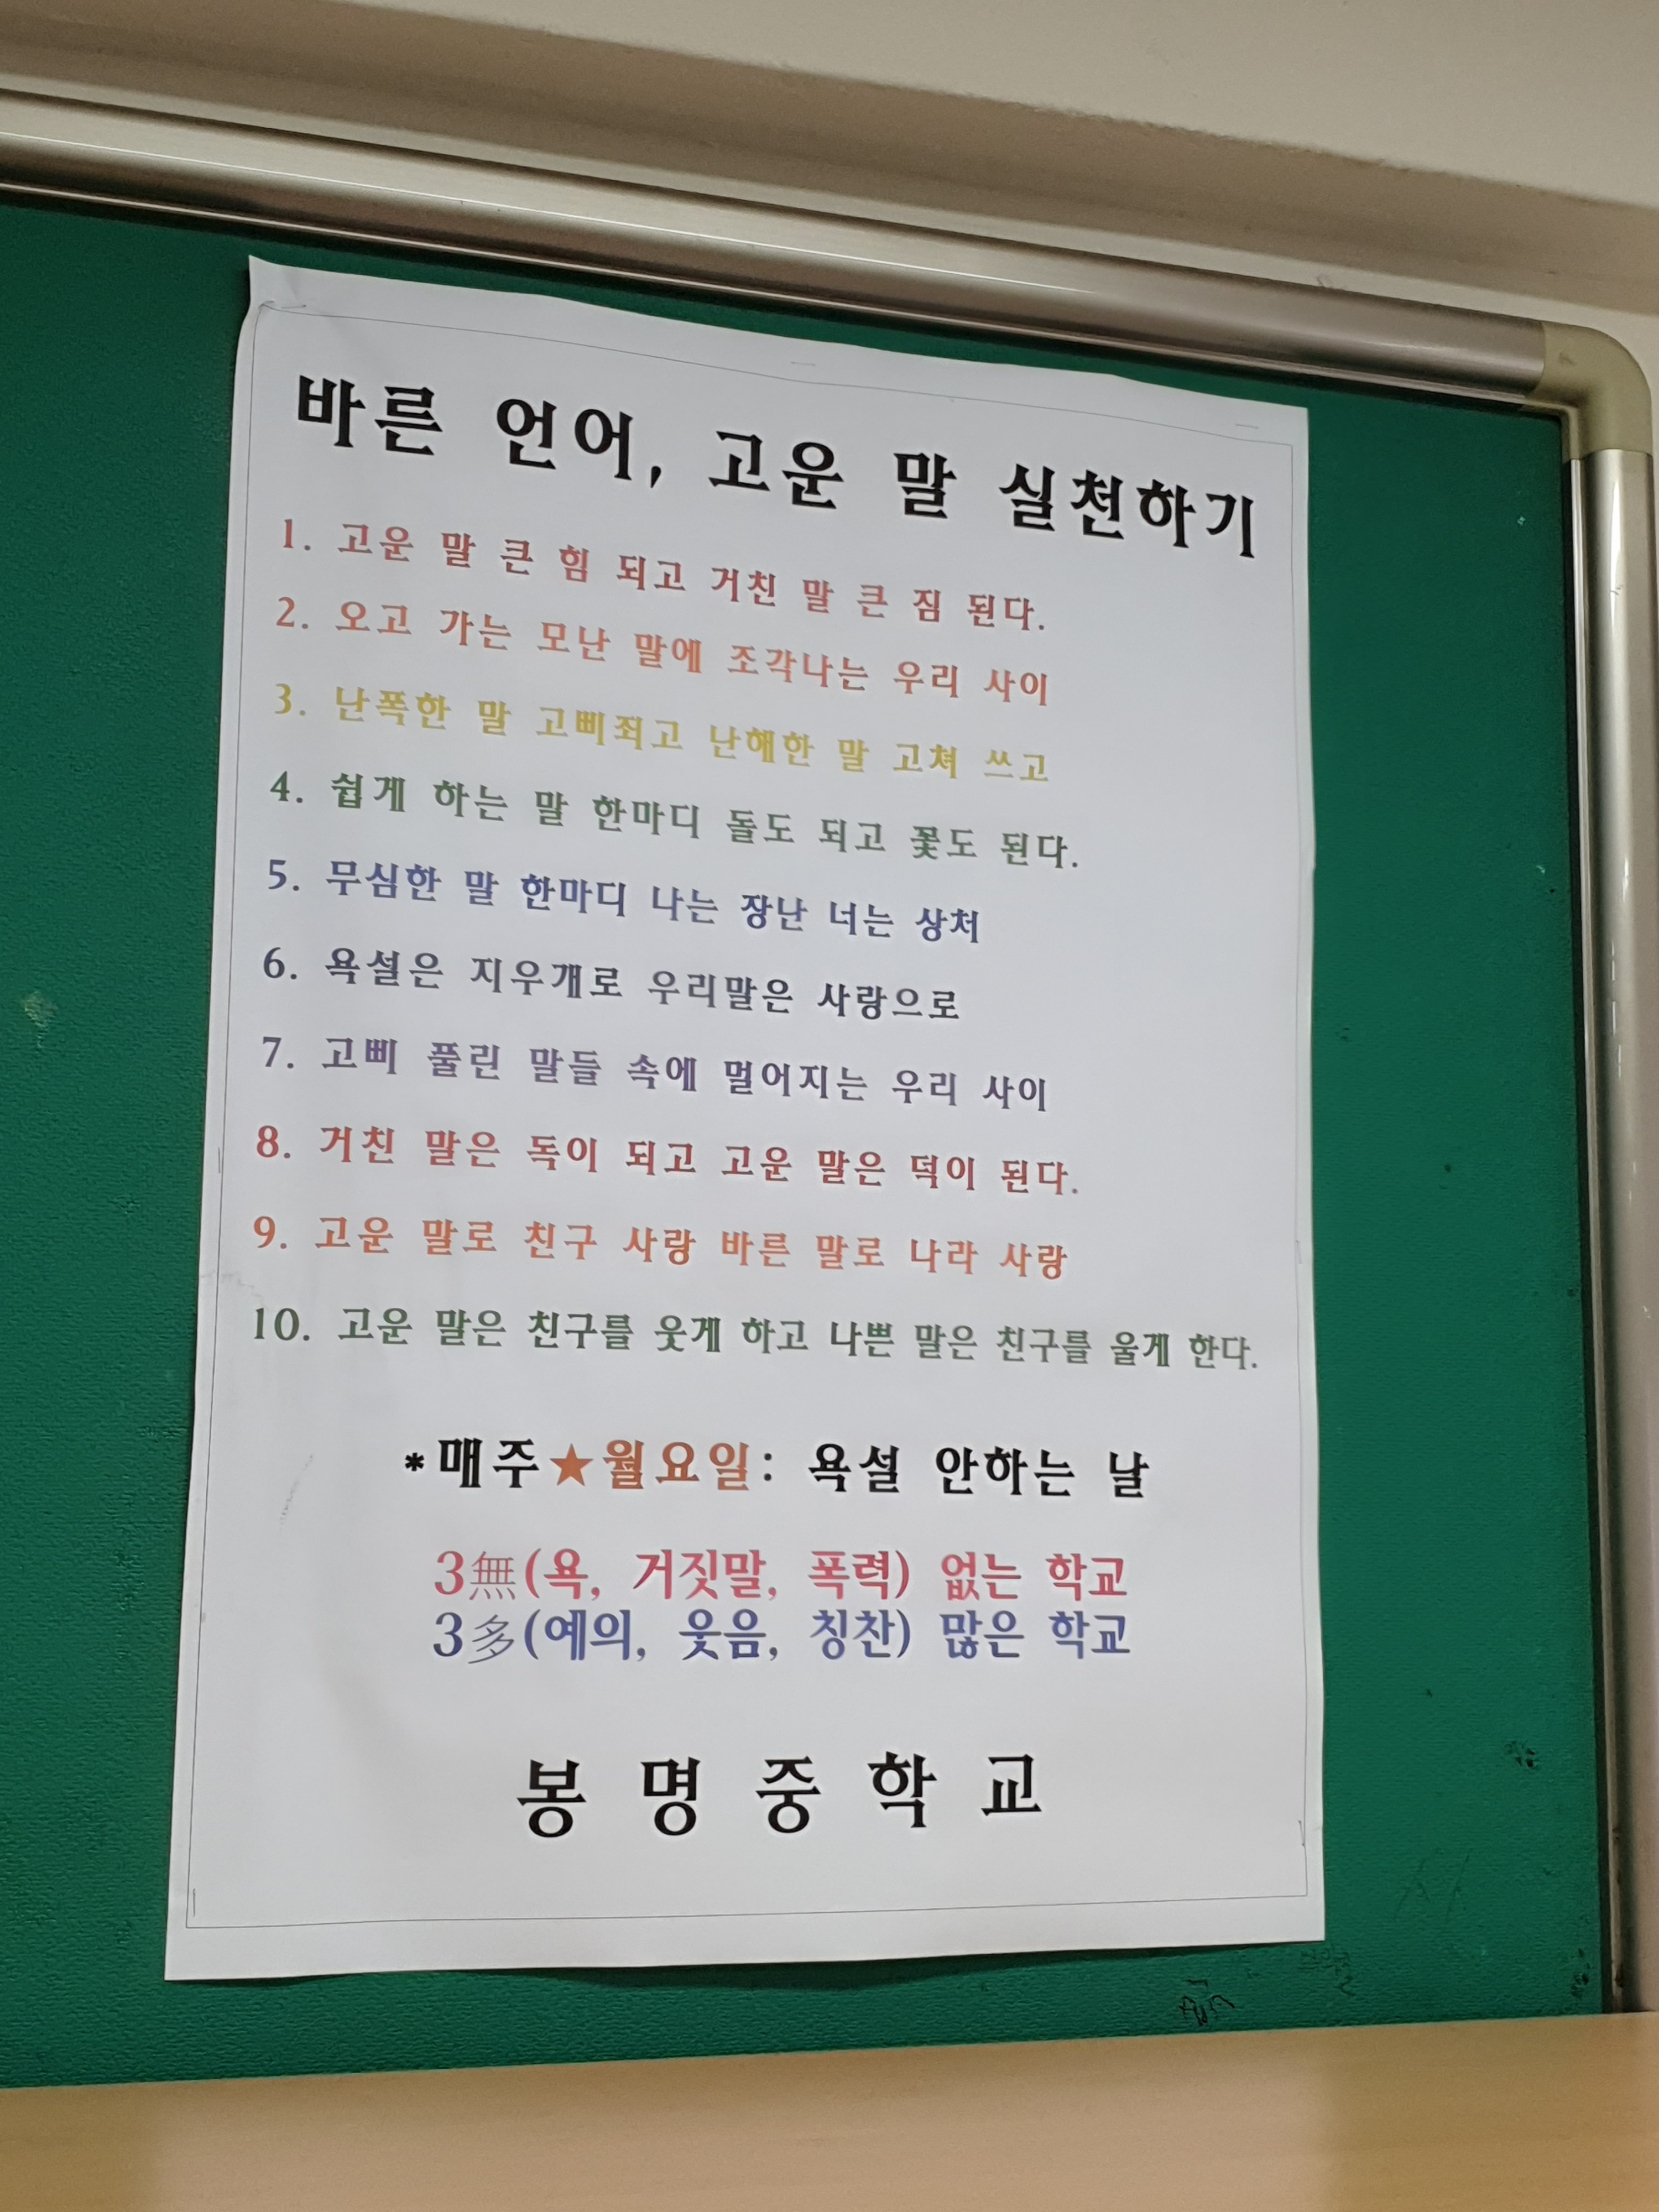 바른 언어, 고운 말 실천하기
1. 고운 말 큰 힘 되고 거친 말 큰 짐 된다.
2. 오고 가는 모난 말에 조각나는 우리 사이
3. 난폭한 말 고삐죄고 난해한 말 고쳐 쓰고
4. 쉽게 하는 말 한마디 돌도 되고 꽃도 된다.
5. 무심한 말 한마디 나는 장난 너는 상처
6. 욕설은 지우개로 우리말은 사랑으로
7. 고삐 풀린 말들 속에 멀어지는 우리 사이
8. 거친 말은 독이 되고 고운 말은 덕이 된다.
9. 고운 말로 친구 사랑 바른 말로 나라 사랑
10. 고운 말은 친구를 웃게 하고 나쁜 말은 친구를 울게 한다.
*매주★월요일: 욕설 안하는 날
3無(욕, 거짓말, 폭력) 없는 학교
3多(예의, 웃음, 칭찬) 많은 학교
봉 명 중 학 교